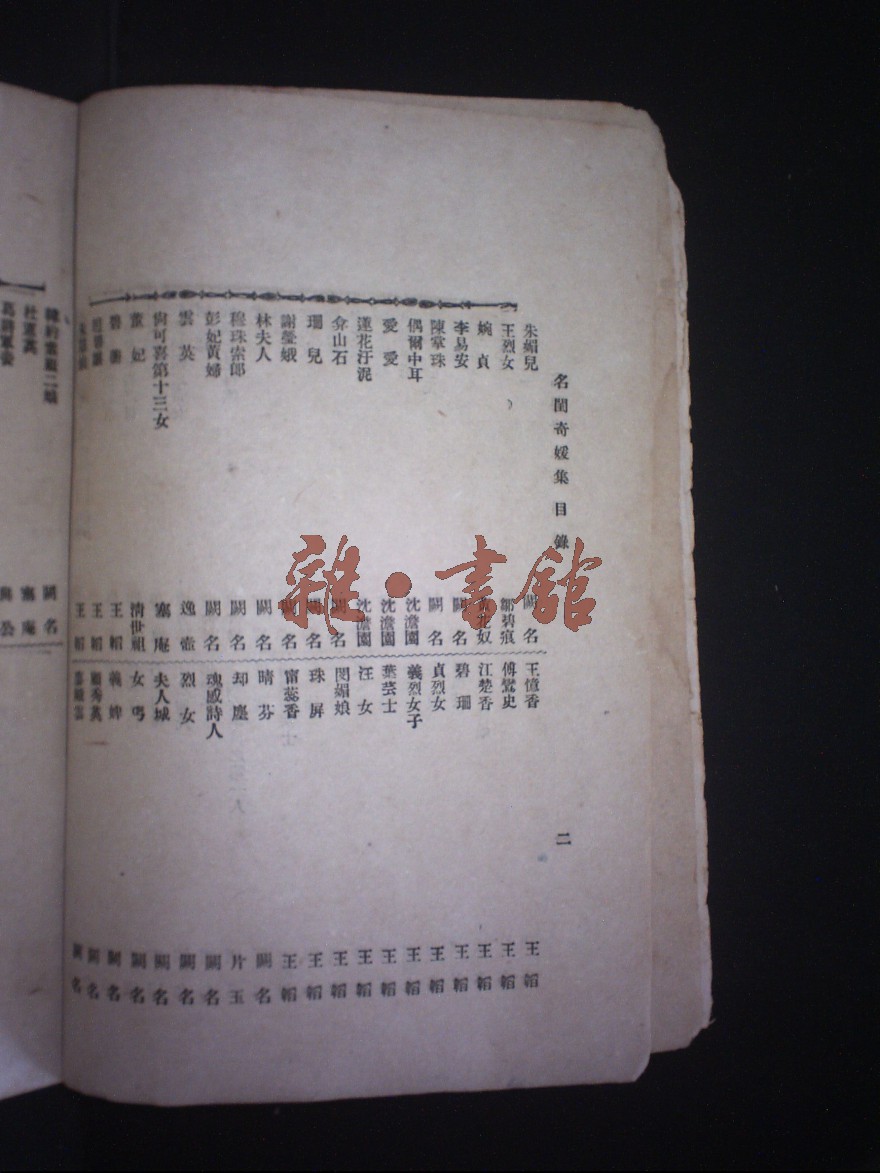 名閨奇媛集 目錄
二
朱媚兒 闕名
王烈女 鄒碧痕
婉貞
李易安 闕名
陳掌珠 闕名
偶爾中耳 沈澹園
愛愛 沈澹園
蓮花汙泥 沈澹園
弇山石 闕名
珊兒 闕名
謝瑩娥 闕名
林夫人 闕名
穆珠索郎 闕名
彭妃黃婦 闕名
雲英 逸壺
尙可喜第十三女 蹇庵
董妃 清世祖
王韜
王韜
王韜
王憶香 王韜
傅鸞史 王韜
江楚香 王韜
碧珊 王韜
貞烈女 王韜
義烈女子 王韜
葉芸士 王韜
汪女 王韜
閔媚娘 王韜
珠屏 王韜
甯蕊香 王韜
晴芬 闕名
却塵 片玉
魂感詩人 闕名
烈女 闕名
夫人城 闕名
女丐 闕名
義婢 闕名
顧秀英 闕名
闕名
雜·書館